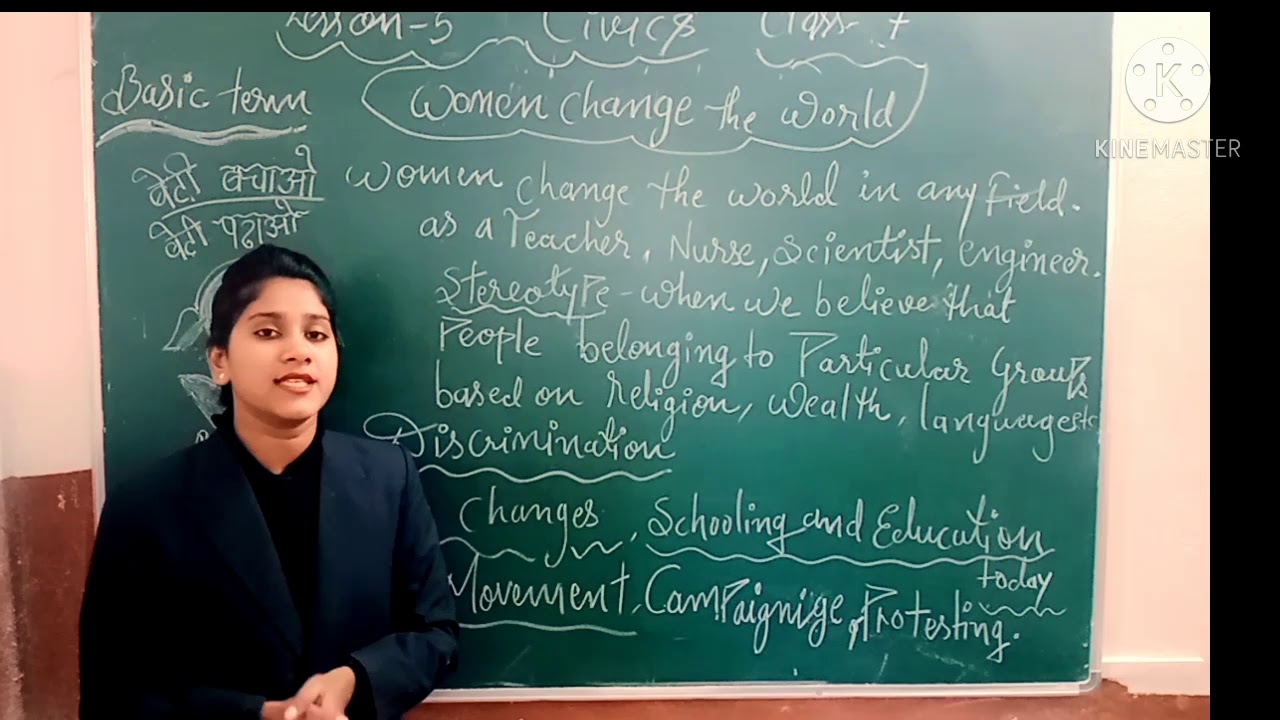 Lesson-5 Civics Class-7
Basic term
Women Change the World
बेटी बचाओ
बेटी पढ़ाओ
Women Change the world in any Field.
as a Teacher, Nurse, Scientist, Engineer.
Stereotype - when we believe that
People belonging to Particular Groups
based on religion, Wealth, language etc
Discrimination
Changes, Schooling and Education
today
Movement, Campaignige, Protesting.
K
KINEMASTER